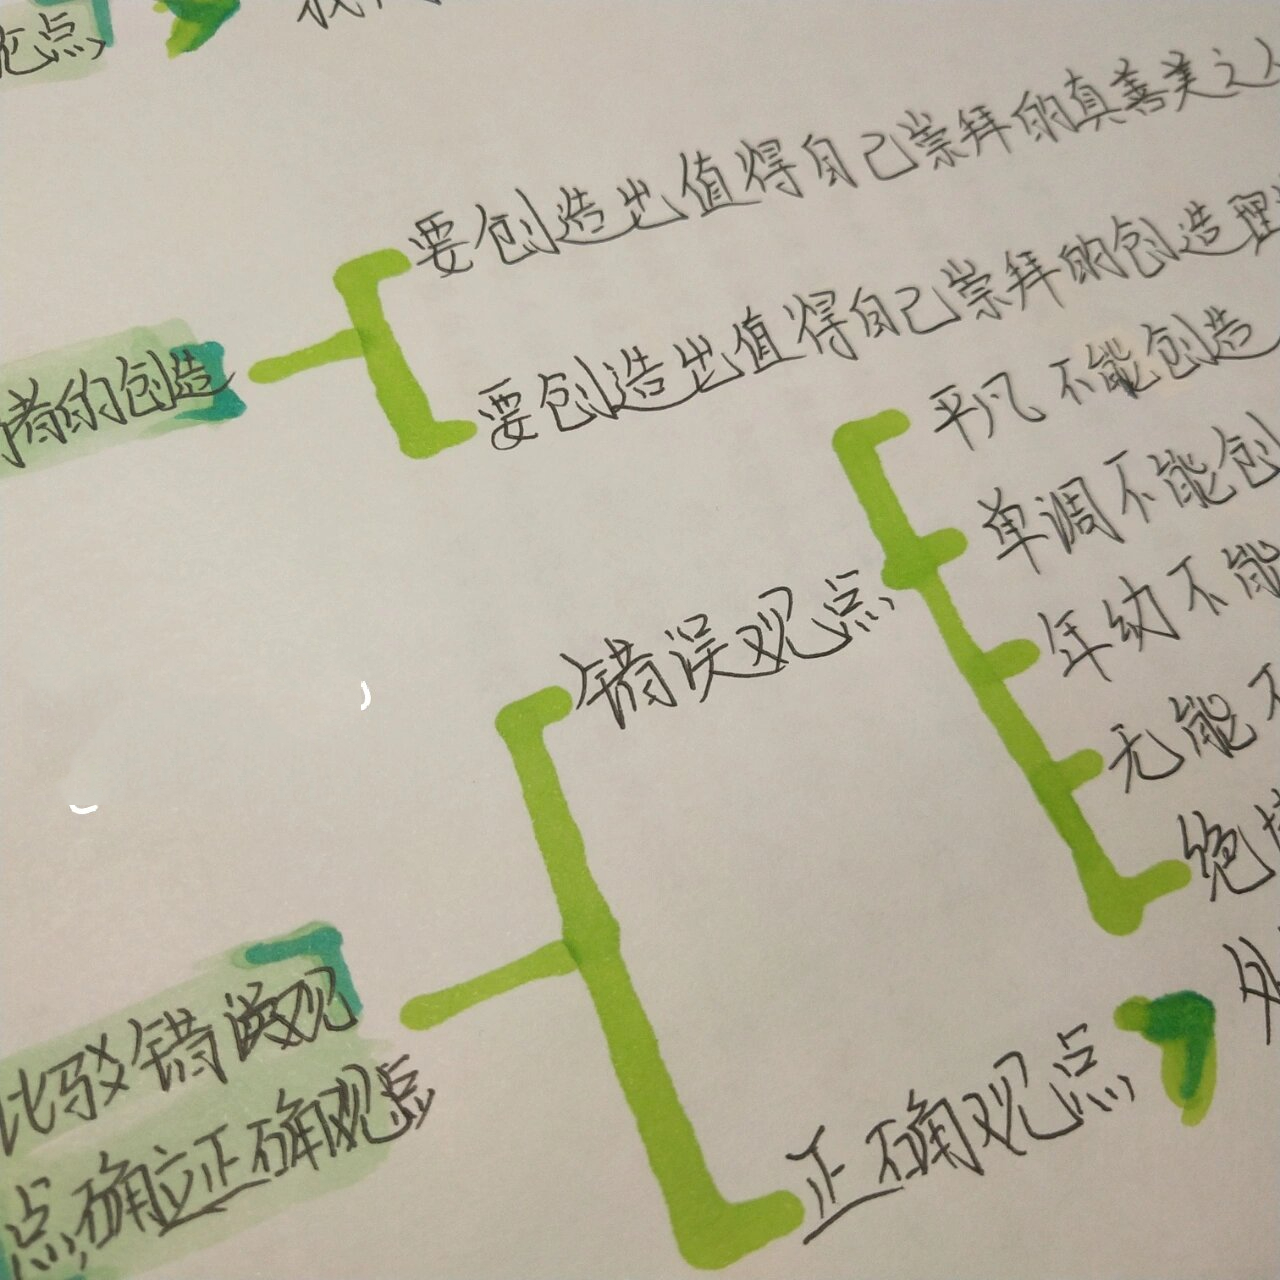 论点
者的创造
要创造出值得自己崇拜的真善美之人
要创造出值得自己崇拜的创造理
错误观点
平凡不能创造
单调不能创
年幼不能
无能不
绝境
比驳错误观
点,确立正确观点
正确观点